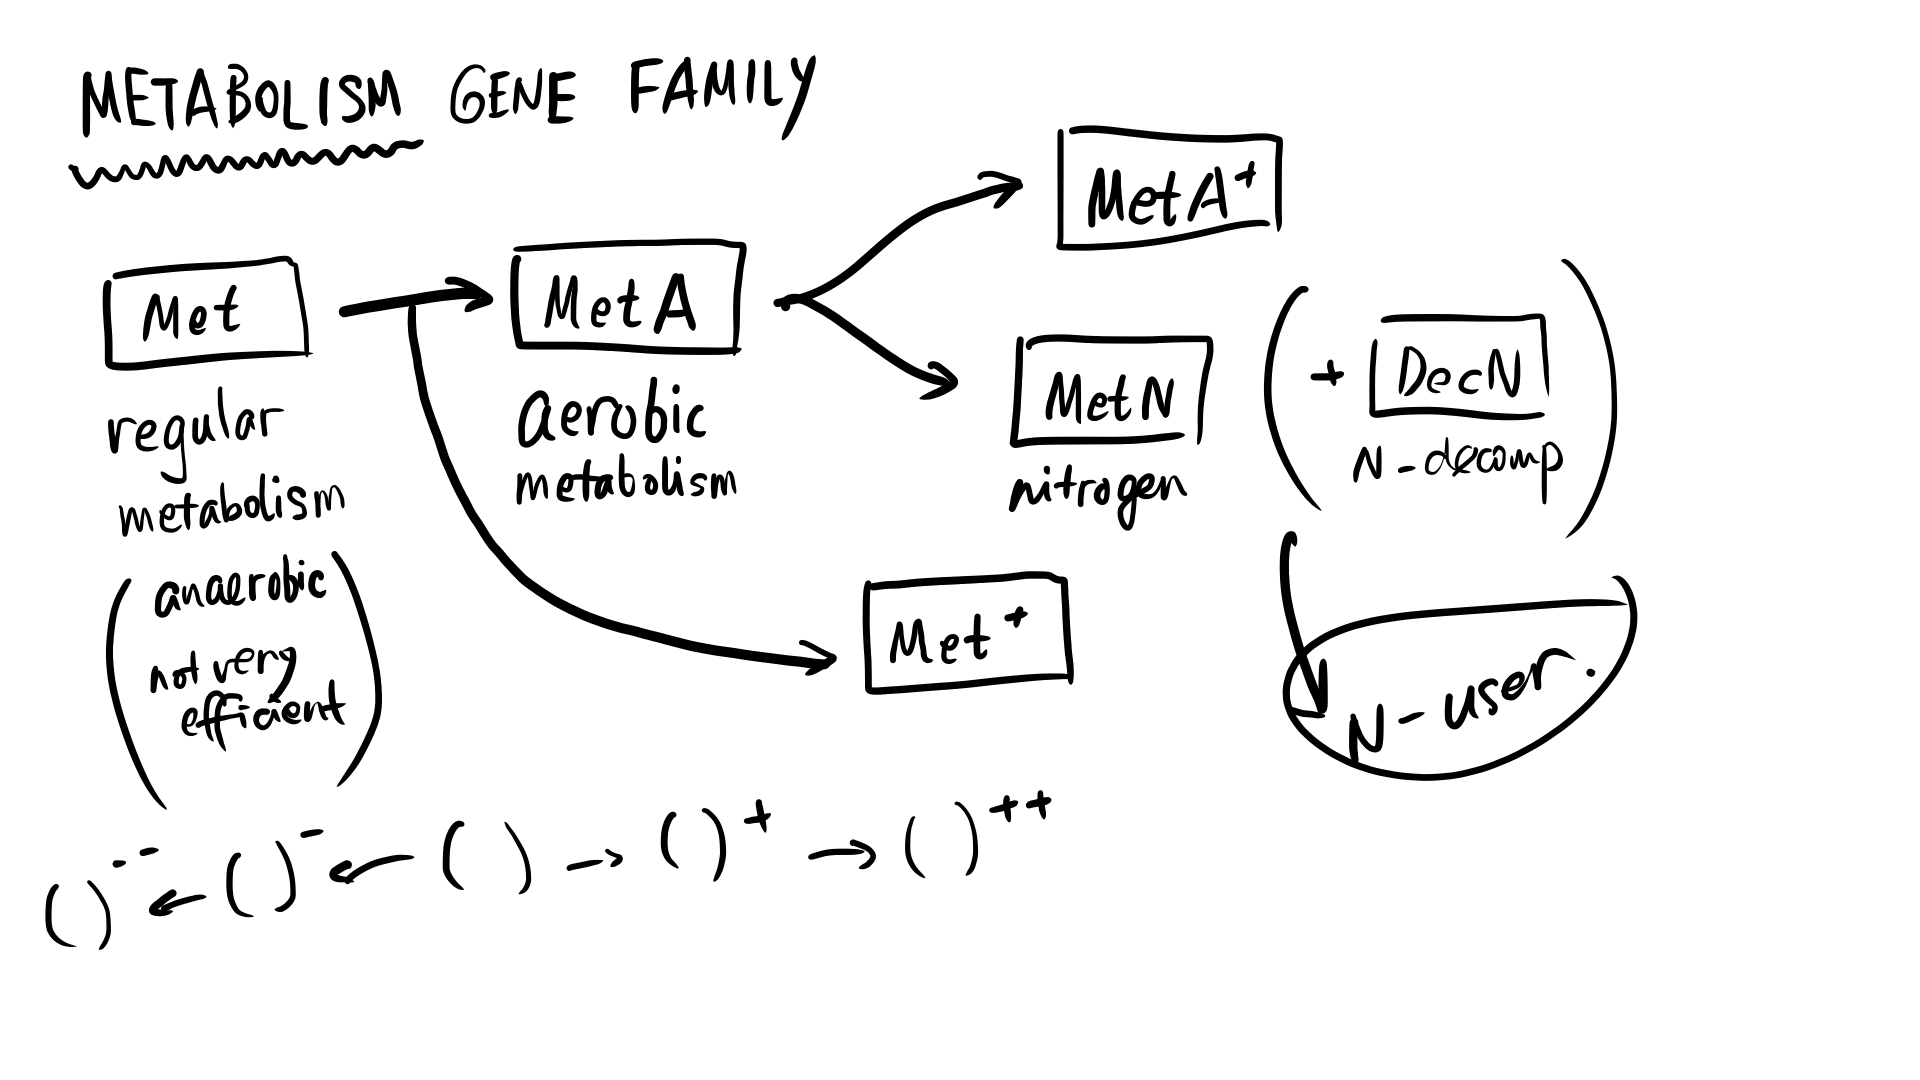 METABOLISM GENE FAMILY
Met
regular
metabolism
(anaerobic
not very
efficient)
MetA
aerobic
metabolism
MetA+
MetN
nitrogen
(+ DecN
N-decomp)
N-user.
Met+
()-- ← ()- ← () → ()+ → ()++